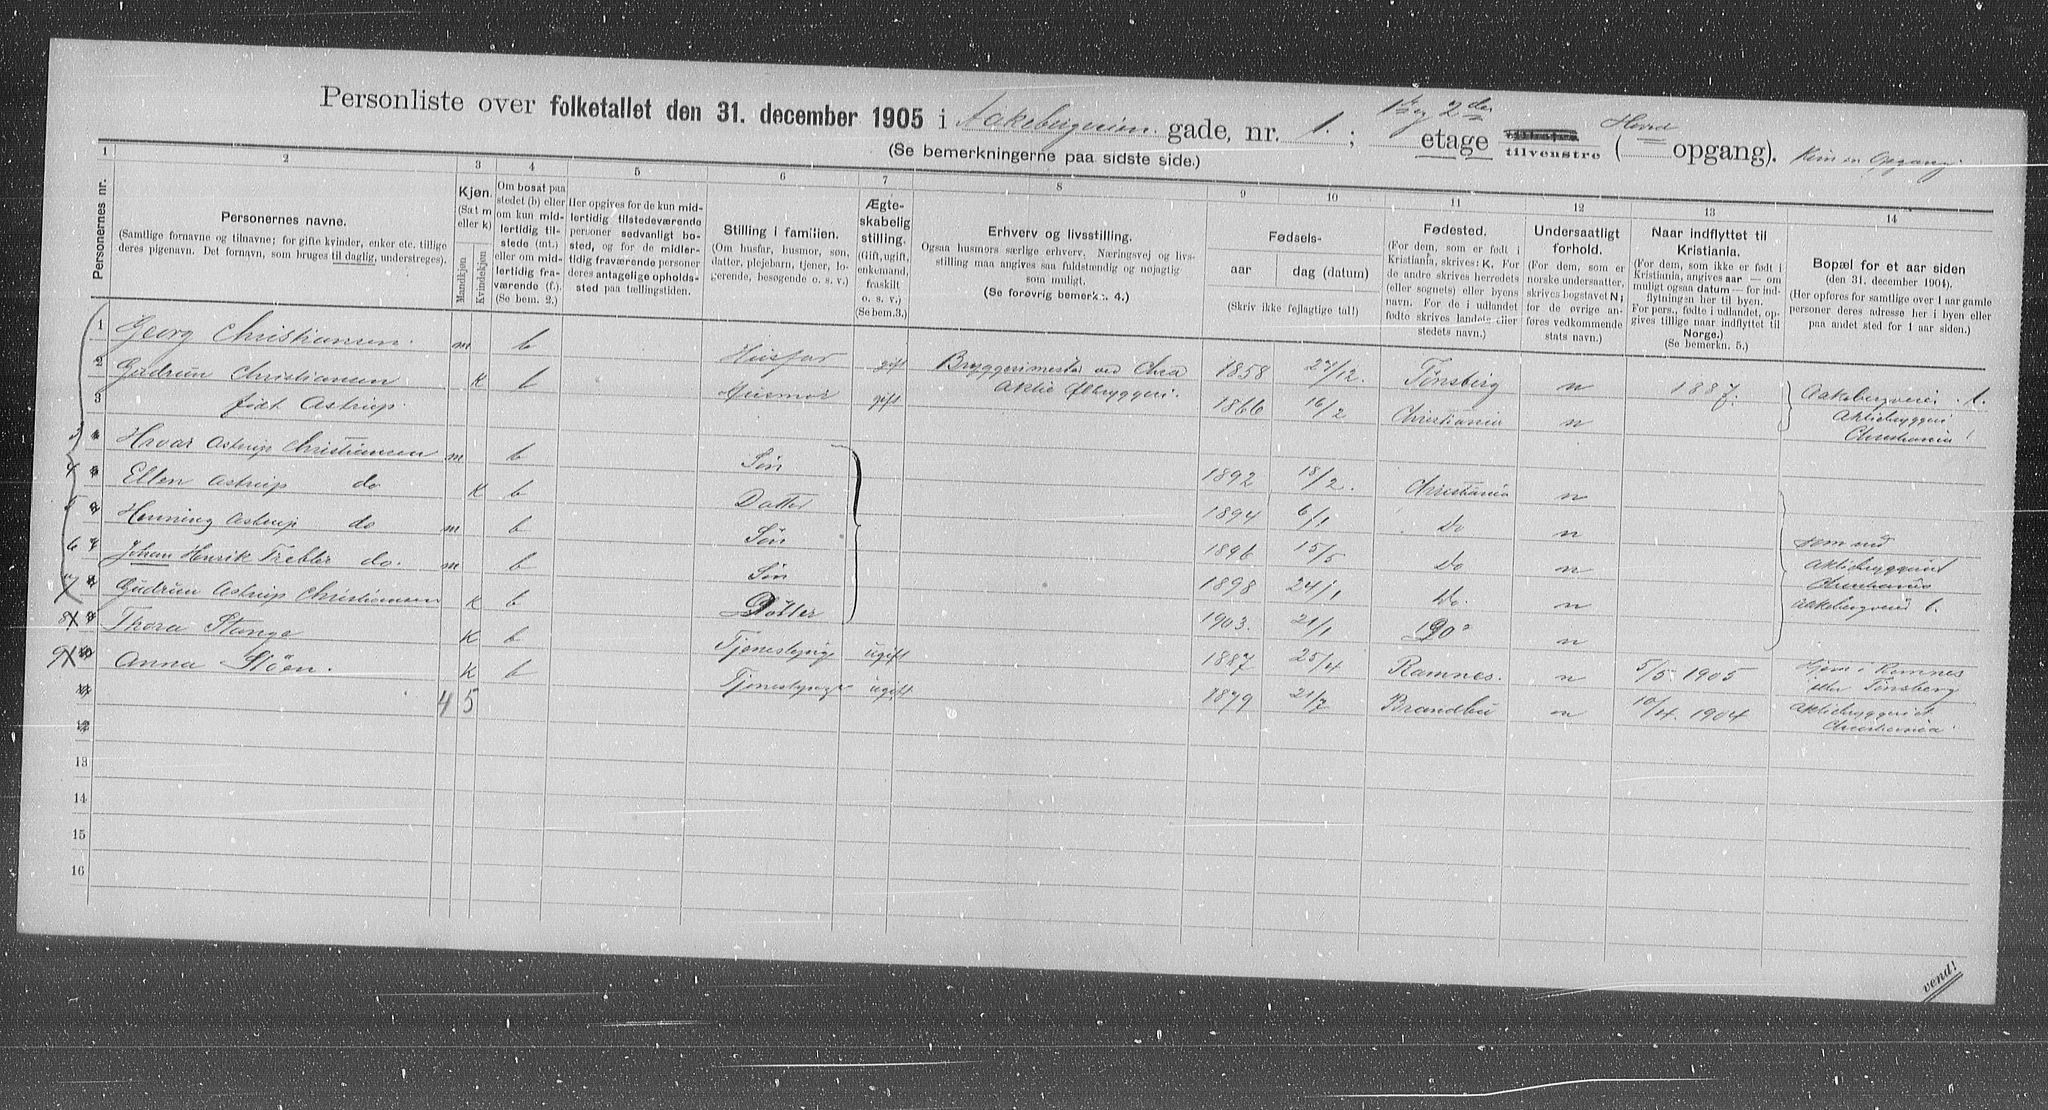 Personliste over folketallet den 31. december 1905 i Aakebergveien gade, nr. 1. ; 1ste og 2den etage tilvenstre ( Hoved opgang). Kun en Opgang.
(Se bemerkningerne paa sidste side.)
1 2 3 4 5 6 7 8 9 10 11 12 13 14
Personernes nr.
Personernes navne.
(Samtlige fornavne og tilnavne; for gifte kvinder, enker etc. tillige
deres pigenavn. Det fornavn, som bruges til daglig, understreges).
Kjøn.
(Sæt m
eller k)
Mandkjøn
Kvindekjøn
Om bosat paa
stedet (b) eller
om kun mid-
lertidig til-
stede (mt.)
eller om mid-
lertidig fra-
værende (f.).
(Se bem. 2.)
Her opgives for de kun mid-
lertidig tilstedeværende
personer sedvanligt bo-
sted, og for de midler-
tidig fraværende personer
deres antagelige opholds-
sted paa tællingstiden.
Stilling i familien.
(Om husfar, husmor, søn,
datter, plejebarn, tjener, lo-
gerende, besøgende o. s. v.)
Ægte-
skabelig
stilling.
(Gift, ugift,
enkemand,
fraskilt
o. s. v.)
(Se bem.3.)
Erhverv og livsstilling.
Ogsaa husmors særlige erhverv. Næringsvej og livs-
stilling maa angives saa fuldstændig og nøjagtig
som muligt.
(Se forøvrig bemerkn. 4.)
Fødsels-
aar
dag (datum)
(Skriv ikke fejlagtige tal!)
Fødested.
(For dem, som er født i
Kristiania, skrives: K. For
de andre skrives herredets
(eller sognets) eller byens
navn. For de i udlandet
fødte skrives landets eller
stedets navn.)
Undersaatligt
forhold.
(For dem, som er
norske undersaatter,
skrives bogstavet N;
for de øvrige an-
føres vedkommende
stats navn.)
Naar indflyttet til
Kristiania.
(For dem, som ikke er født i
Kristiania, angives aar — om
muligt ogsaa datum — for ind-
flytningen her til byen.
For pers., fødte i udlandet, op-
gives tillige naar indflyttet til
Norge.)
(Se bemerkn. 5.)
Bopæl for et aar siden
(den 31. december 1904).
(Her opføres for samtlige over 1 aar gamle
personer deres adresse her i byen eller
paa andet sted for 1 aar siden.)
1 Georg Christiansen. m b Husfar gift Bryggerimester ved Chra 1858 27/12. Tönsberg n 1887. Aakebergveien 1.
2 Gudrun Christiansen K b Husmor gift. Aktie Ølbryggeri. 1866 16/2 Christiania n Aktiebryggeri
3 født Astrup. Christiania
3 Havar Astrup Christiansen m b Sön 1892 18/2. Christiania n
4 Ellen Astrup do K b Datter 1894 6/1 Do n
5 Henning Astrup do m b Sön 1896 15/5 Do n som ved
6 Johan Henrik Trebler do. m b Sön 1898 24/1 Do. n Aktiebryggeriet
Christiania
7 Gudrun Astrup Christiansen K b Datter 1903. 21/1 Do n Aakebergveien 1.
8 Thora Stange K b Tjenestepige ugift 1887 25/4 Ramnes. n 5/5 1905 Hjem i Ramnes
eller Tönsberg
9 Anna Stöen. K b Tjenestepige ugift 1879 21/7 Brandbu n 10/4. 1904 Aktiebryggeriet
Christiania.
4 5
13
14
15
16
vend!